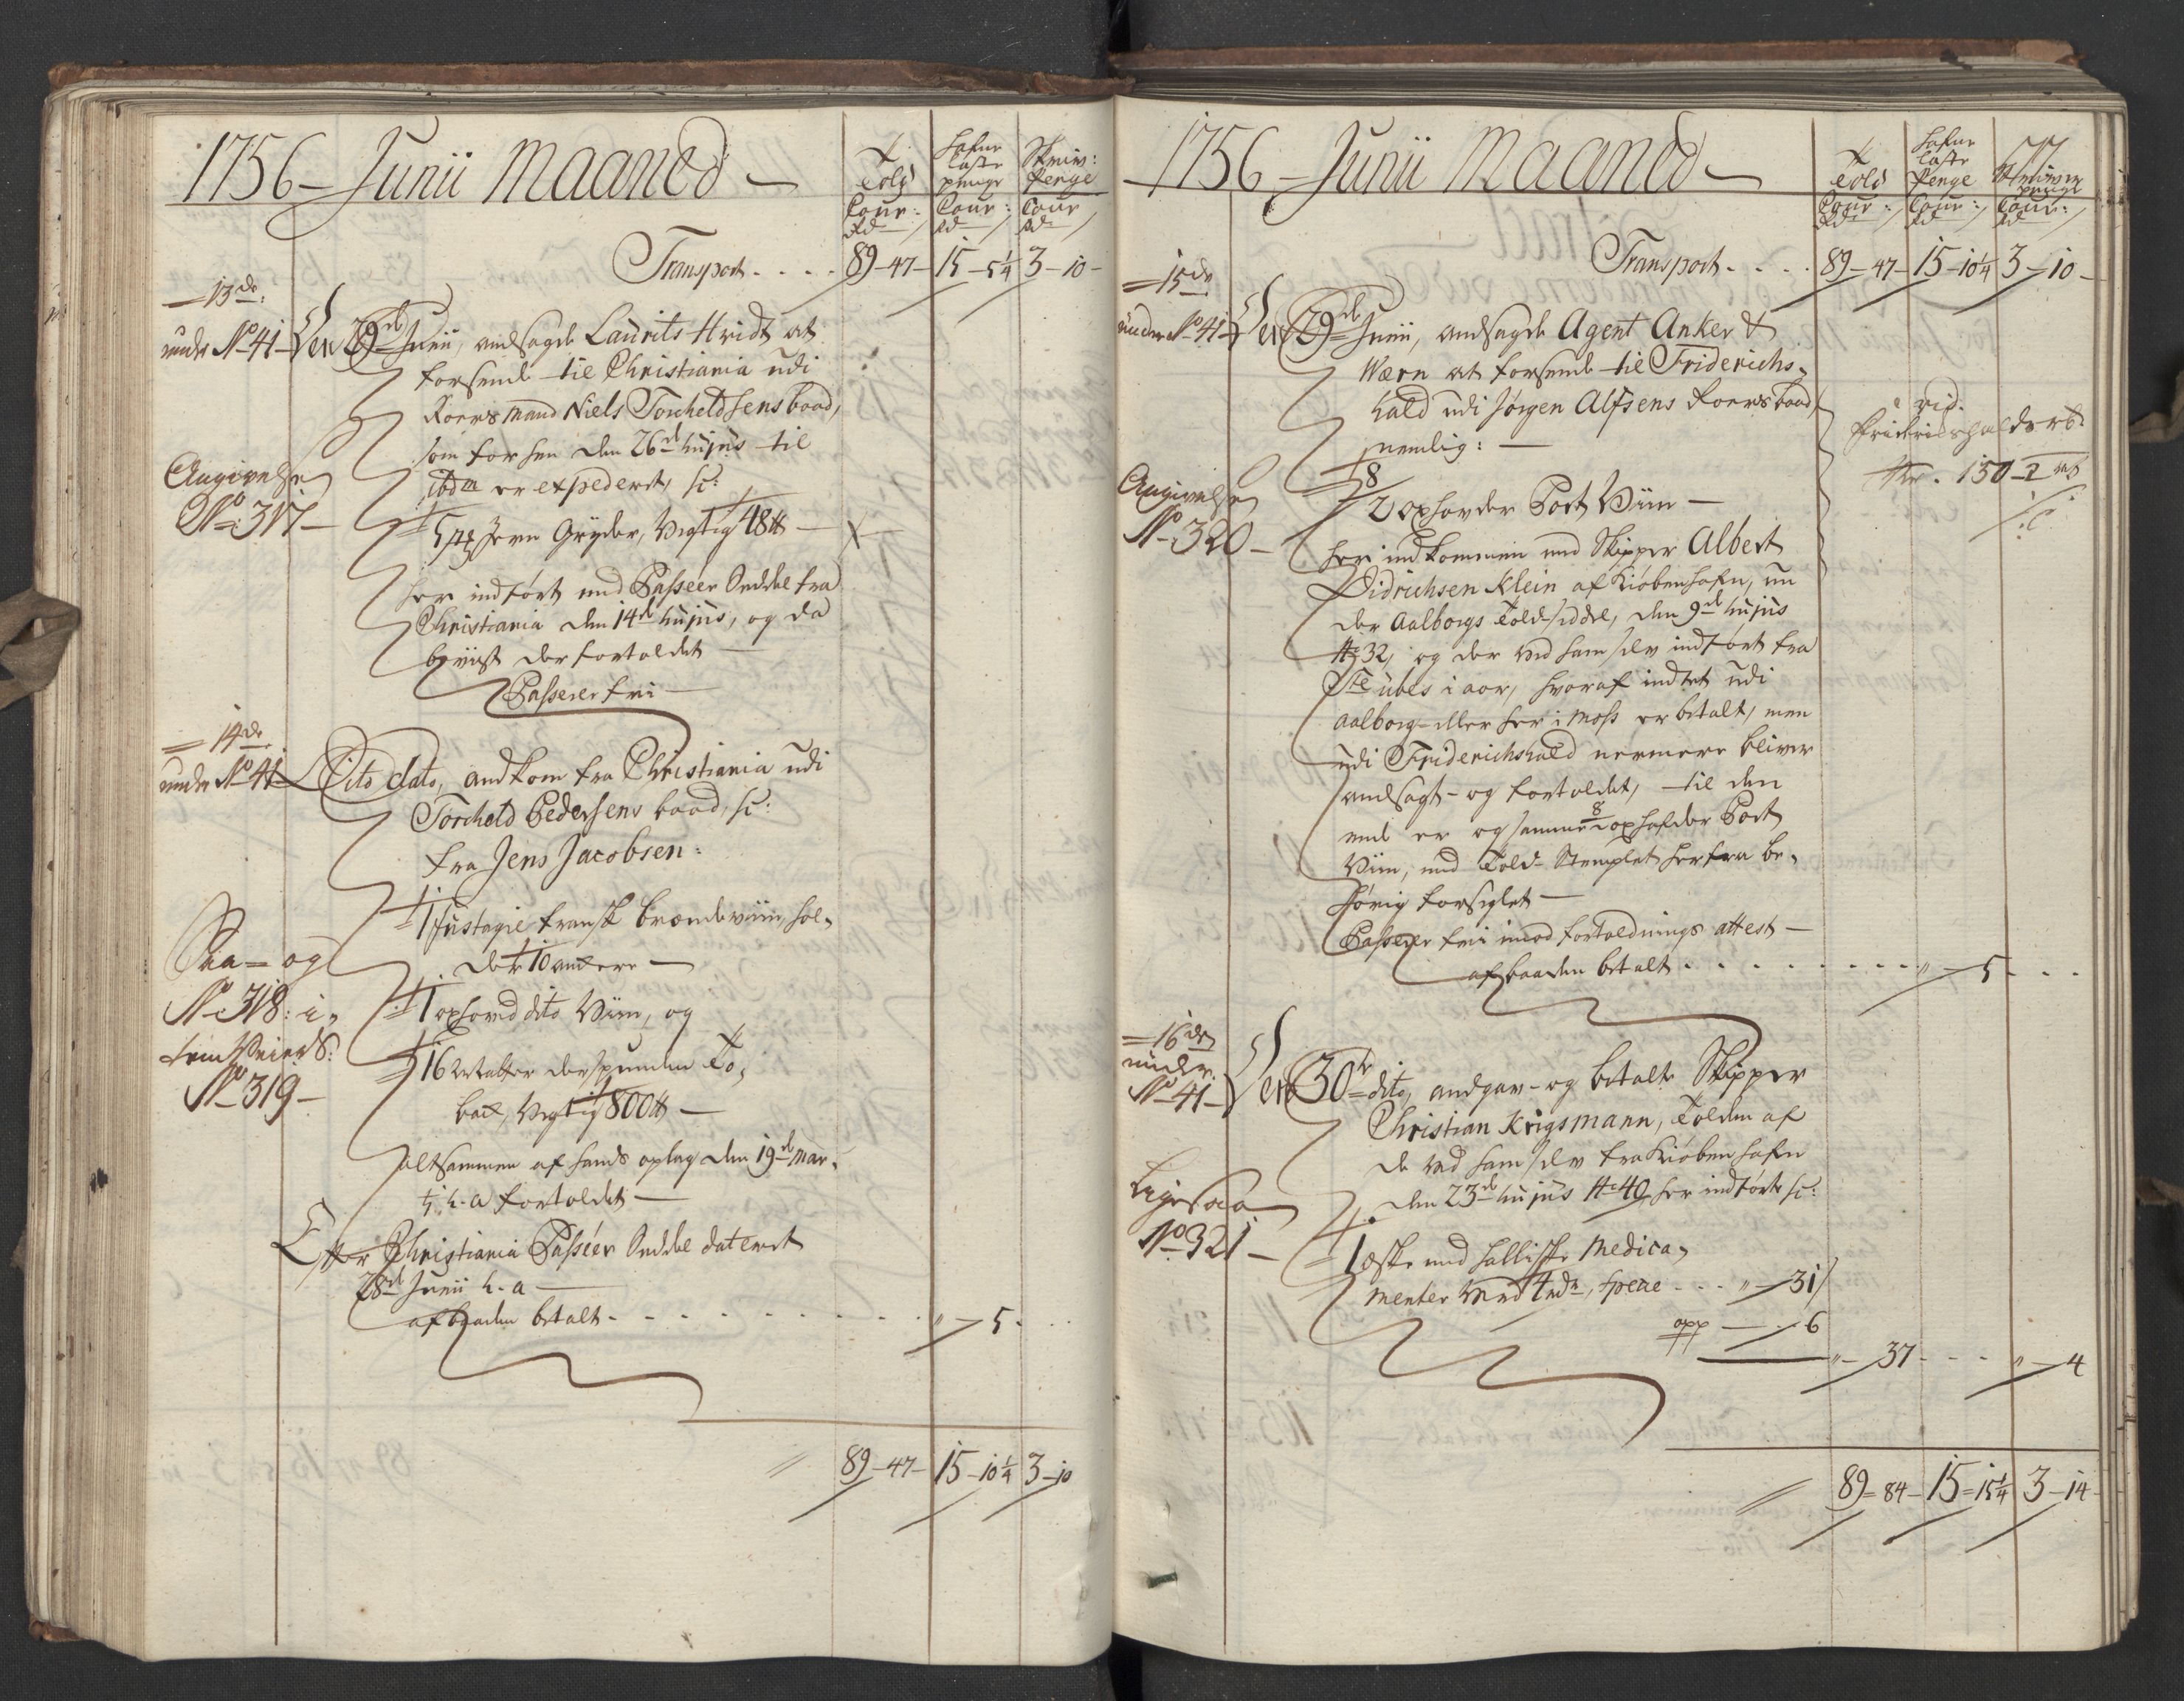 1756 - Junii Maaned -
Told
Cour:
Rd
Hafne
Laste
penge
Cour:
Rd
Skriv:
Penge
Cour
Rd
Transport - - - - 89 - 47 - 15 - 5 1/4 3 - 10 -
- 13de:
under No 41 - Den 29de Junii, andsagde Laurits Hvidt at
forsende til Christiania udi
Roersmand Niels Torcheldsens baad,
som for hen den 26d hujus til
ibdm er expederet, sc:
Angivelse
No 317 -
5 Jern Gryder, Vegtig 48 ℔ -
her indført med Passeer Seddel fra
Christiania den 14d hujus, og da
beviist der fortoldet -
Passerer fri -
= 14de
under No 41 - Dito dato, andkom fra Christiania udi
Torcheld Pedersens baad, sc:
fra Jens Jacobsen:
1 fustagie fransk brændeviin, hol,
der 10 ankere -
Saa - og
No 318: i,
No 319 -
1 oxhoved dito Viin, og
16 der spunden To,
bak, Vegtig 800 ℔ -
altsammen af hands oplag den 19d Mar,
tj h. a fortoldet -
Efter Christiania Passéer Seddel dateret
28d Junii h. a -
af baaden betalt - - - - - - - - - " - 5 - - -
89 - 47 - 15 - 10 1/4 3 - 10
1756 - Junii Maaned -
Told
Cour:
Rd
Hafne
Laste
Penge
Cour:
Rd
Skriver
penge
Cour:
Rd
Transport - - - - 89 - 47 - 15 - 10 1/4 3 - 10 -
= 15de
under No 41 - Den 29de Junii, andsagde Agent Anker &
Wærn at forsende til Friderichs,
hald udi Jørgen Alfsens Roersbaad,
nemlig: -
vid.
Friderichshalds
No. 150 - 2
Angivelse
No 320 -
8
2 oxhovder Port Viin -
her indkommen med Skipper Albert
Didrichsen Klein af Kiøbenhafn, un
der Aalborgs Toldseddel, den 9d hujus
No 32, og der ved ham selv indført fra
St: übes i aar, hvoraf intet udi
Aalborg - eller her i Moss er betalt, men
udi Friderichshald nermere bliver
andsagt - og fortoldet, til den
ende er og samme 8/2 oxhofder Port
Viin, med Told - Stemplet herfra be,
hørig forseglet -
Passerer fri imod fortoldnings attest -
af baaden betalt - - - - - - - - - " - 5 - - -
= 16de
under
No 41 - Den 30te dito, andgav - og betalte Skipper
Christian Krigsmann, Tolden af
de ved ham selv fra Kiøbenhafn
den 23de hujus No 40 her indførte sc:
Ligesaa
No 321 -
1 æske med hallische Medica,
menter Værd 4 rdr, - - - " - 31/
opp - - 6
" - 37 - - - " - 4
89 - 84 - 15 - 15 1/4 3 - 14 -